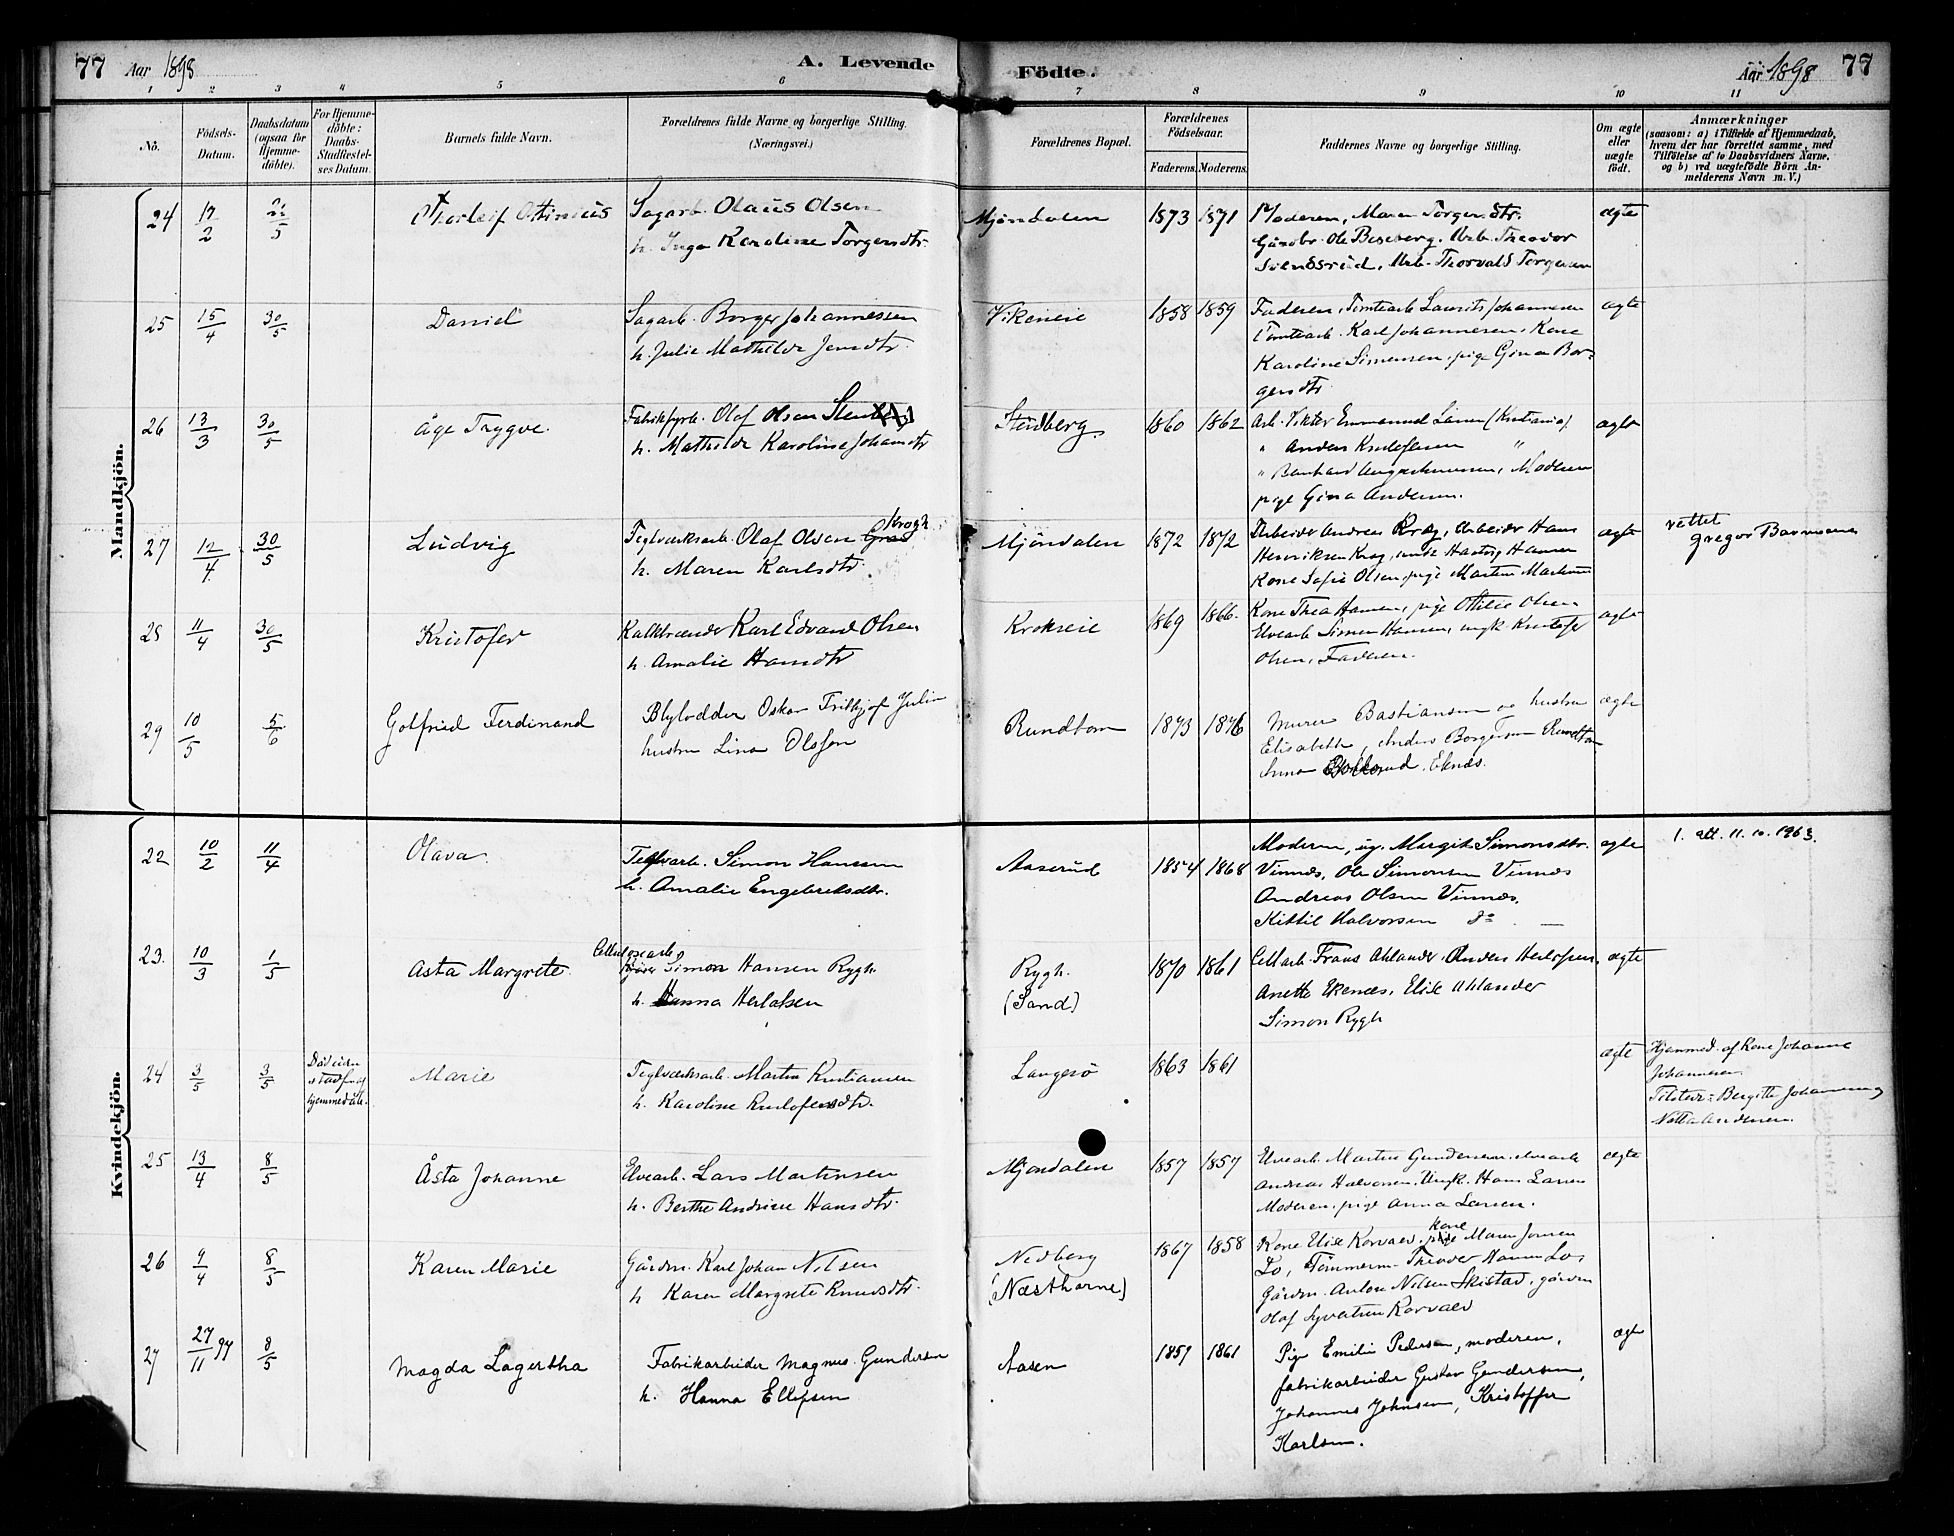 77 Aar 1898 A. Levende
Födte. Aar 1898 77
1 2 3 4 5 6 7 8 9 10 11
No.
Födsels-Datum.
Daabsdatum (ogsaa for Hjemme-döbte).
For Hjemme-döbte: Daabs-Stadfæstel-ses Datum.
Barnets fulde Navn.
Forældrenes fulde Navne og borgerlige Stilling.
(Næringsvei.)
Forældrenes Bopæl.
Forældrenes Födselsaar.
Faderens. Moderens.
Faddernes Navne og borgerlige Stilling.
Om ægte eller uægte födt.
Anmærkninger
(saasom: a) i Tilfælde af Hjemmedaab, hvem der har forrettet samme, med Tilföielse af to Daabsvidners Navne, og b) ved uægtefödte Börn Anmelderens Navn m. V.)
Mandkjön.
24 12/2 Thorleif Ottinius Sagarb. Olaus Olsen Mjöndalen 1873 1871 Moderen, Maren Torgersdtr. ægte
h. Inga Karoline Torgersdtr.
Ole Beseberg. Theodor
Svendsrud, Thorvald Torgersen
25 15/4 30/5 Daniel Sagarb. Borger Johannessen Vikeneie 1858 1859 Faderen, Tomtearb. Laurits Johannesen ægte
h. Julie Mathilde Jensdtr. Tomtearb. Karl Johannesen, Kone
Karoline Simensen, pige Gina Bor-
gersdtr
26 13/3 30/5 Åge Trygve. Fabrikfyrb. Olaf Olsen Stenberg Stenberg 1860 1862 Arb. Viktor Emmanuel Larsen (Kristiania) ægte
h. Mathilde Karoline Johansdtr " Anders Kristofersen "
" Bernhard Moderen
pige Gina Andersen.
27 12/4 30/5 Ludvig Teglværksarb. Olaf Olsen Krogh Mjöndalen 1872 1872 Arbeider Andreas Krog, Arbeider Hans ægte rettet
h. Maren Karlsdtr. Henriksen Krog, Hansen Gregor Barmoen
Kone Sofie Olsen, pige Martine
28 11/4 30/5 Kristofer Kalkbrænder Karl Edvard Olsen Krokseie 1869 1866. Kone Thea Hansen, pige Ottilie Olsen ægte
h. Amalie Hansdtr Elvearb. Simen Hansen, ungk. Kristofer
Olsen, Faderen.
29 10/5 5/6 Golfried Ferdinand Blylodder Oskar Fritjof Julin Rundtom 1873 1876 Murer Bastiansen og hustru ægte
hustru Lina Olsson Elisabeth, Anders Borgersen Rundtom
Anna Eknes.
Kvindekjön.
22 10/2 11/4 Olava Teglvarb. Simon Hansen Aaserud 1854 1868 Moderen, ug. Margit Simonsdtr. ægte 1. att. 11.10.1963.
h. Amalie Engebretsdtr. Vinnes, Ole Simonsen Vinnes
Andreas Olsen Vinnes,
Kittil Halvorsen do —
23. 10/3 1/5 Asta Margrete. Cellulosearb. Simon Hansen Rygh Rygh. (Sand) 1870 1861 Cell.arb. Frans Ahlander, Anders Herlofsen, ægte
h. Hanna Herlofsen Anette Ekenæs, Elise Ahlander
Simon Rygh
24 3/5 3/5 Död uden stadf. af hjemmedåb. Marie Teglværksarb. Martin Kristiansen Langesö 1863 1861 ægte Hjemmed. af Kone Johanne
h. Karoline Kristofersdtr. Johannesen.
Tilstede: Bergitte Johannesen,
Netta Andersen.
25 13/4 8/5 Åsta Johanne Elvearb. Lars Martinsen Mjöndalen 1857 1857 Elvearb. Martin Gundersen, elvearb. ægte
h. Berthe Andrine Hansdtr. Andreas Halvorsen, Ungk. Hans Larsen
Moderen, pige Anna Larsen.
26 9/4 8/5 Karen Marie Gårdm. Karl Johan Nilsen Nedberg (Næsthorne) 1867 1858 Kone Elise Korvald, kone Maren Jensen
h. Karen Margrete Knudsdtr. Lo, Tömmerm. Theodor Hansen Lo,
Gårdm. Anton Nilsen Skistad, gårdm.
Olaf Syvertsen Korvald
27 27/11 97 8/5 Magda Lagertha Fabrikarbeider Magnus Gundersen Aasen 1859 1861 Pige Emilie Pedersen, moderen, ægte
h. Hanna Ellefsen fabrikarbeider Gustav Gundersen,
Johannes Johnsen, Kristoffer
Karlsen.